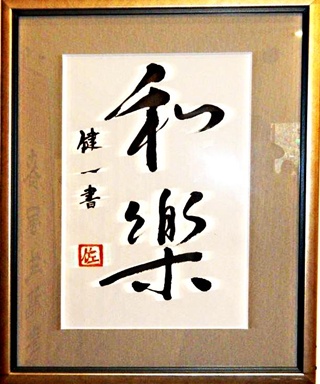 和樂
健一書
佐